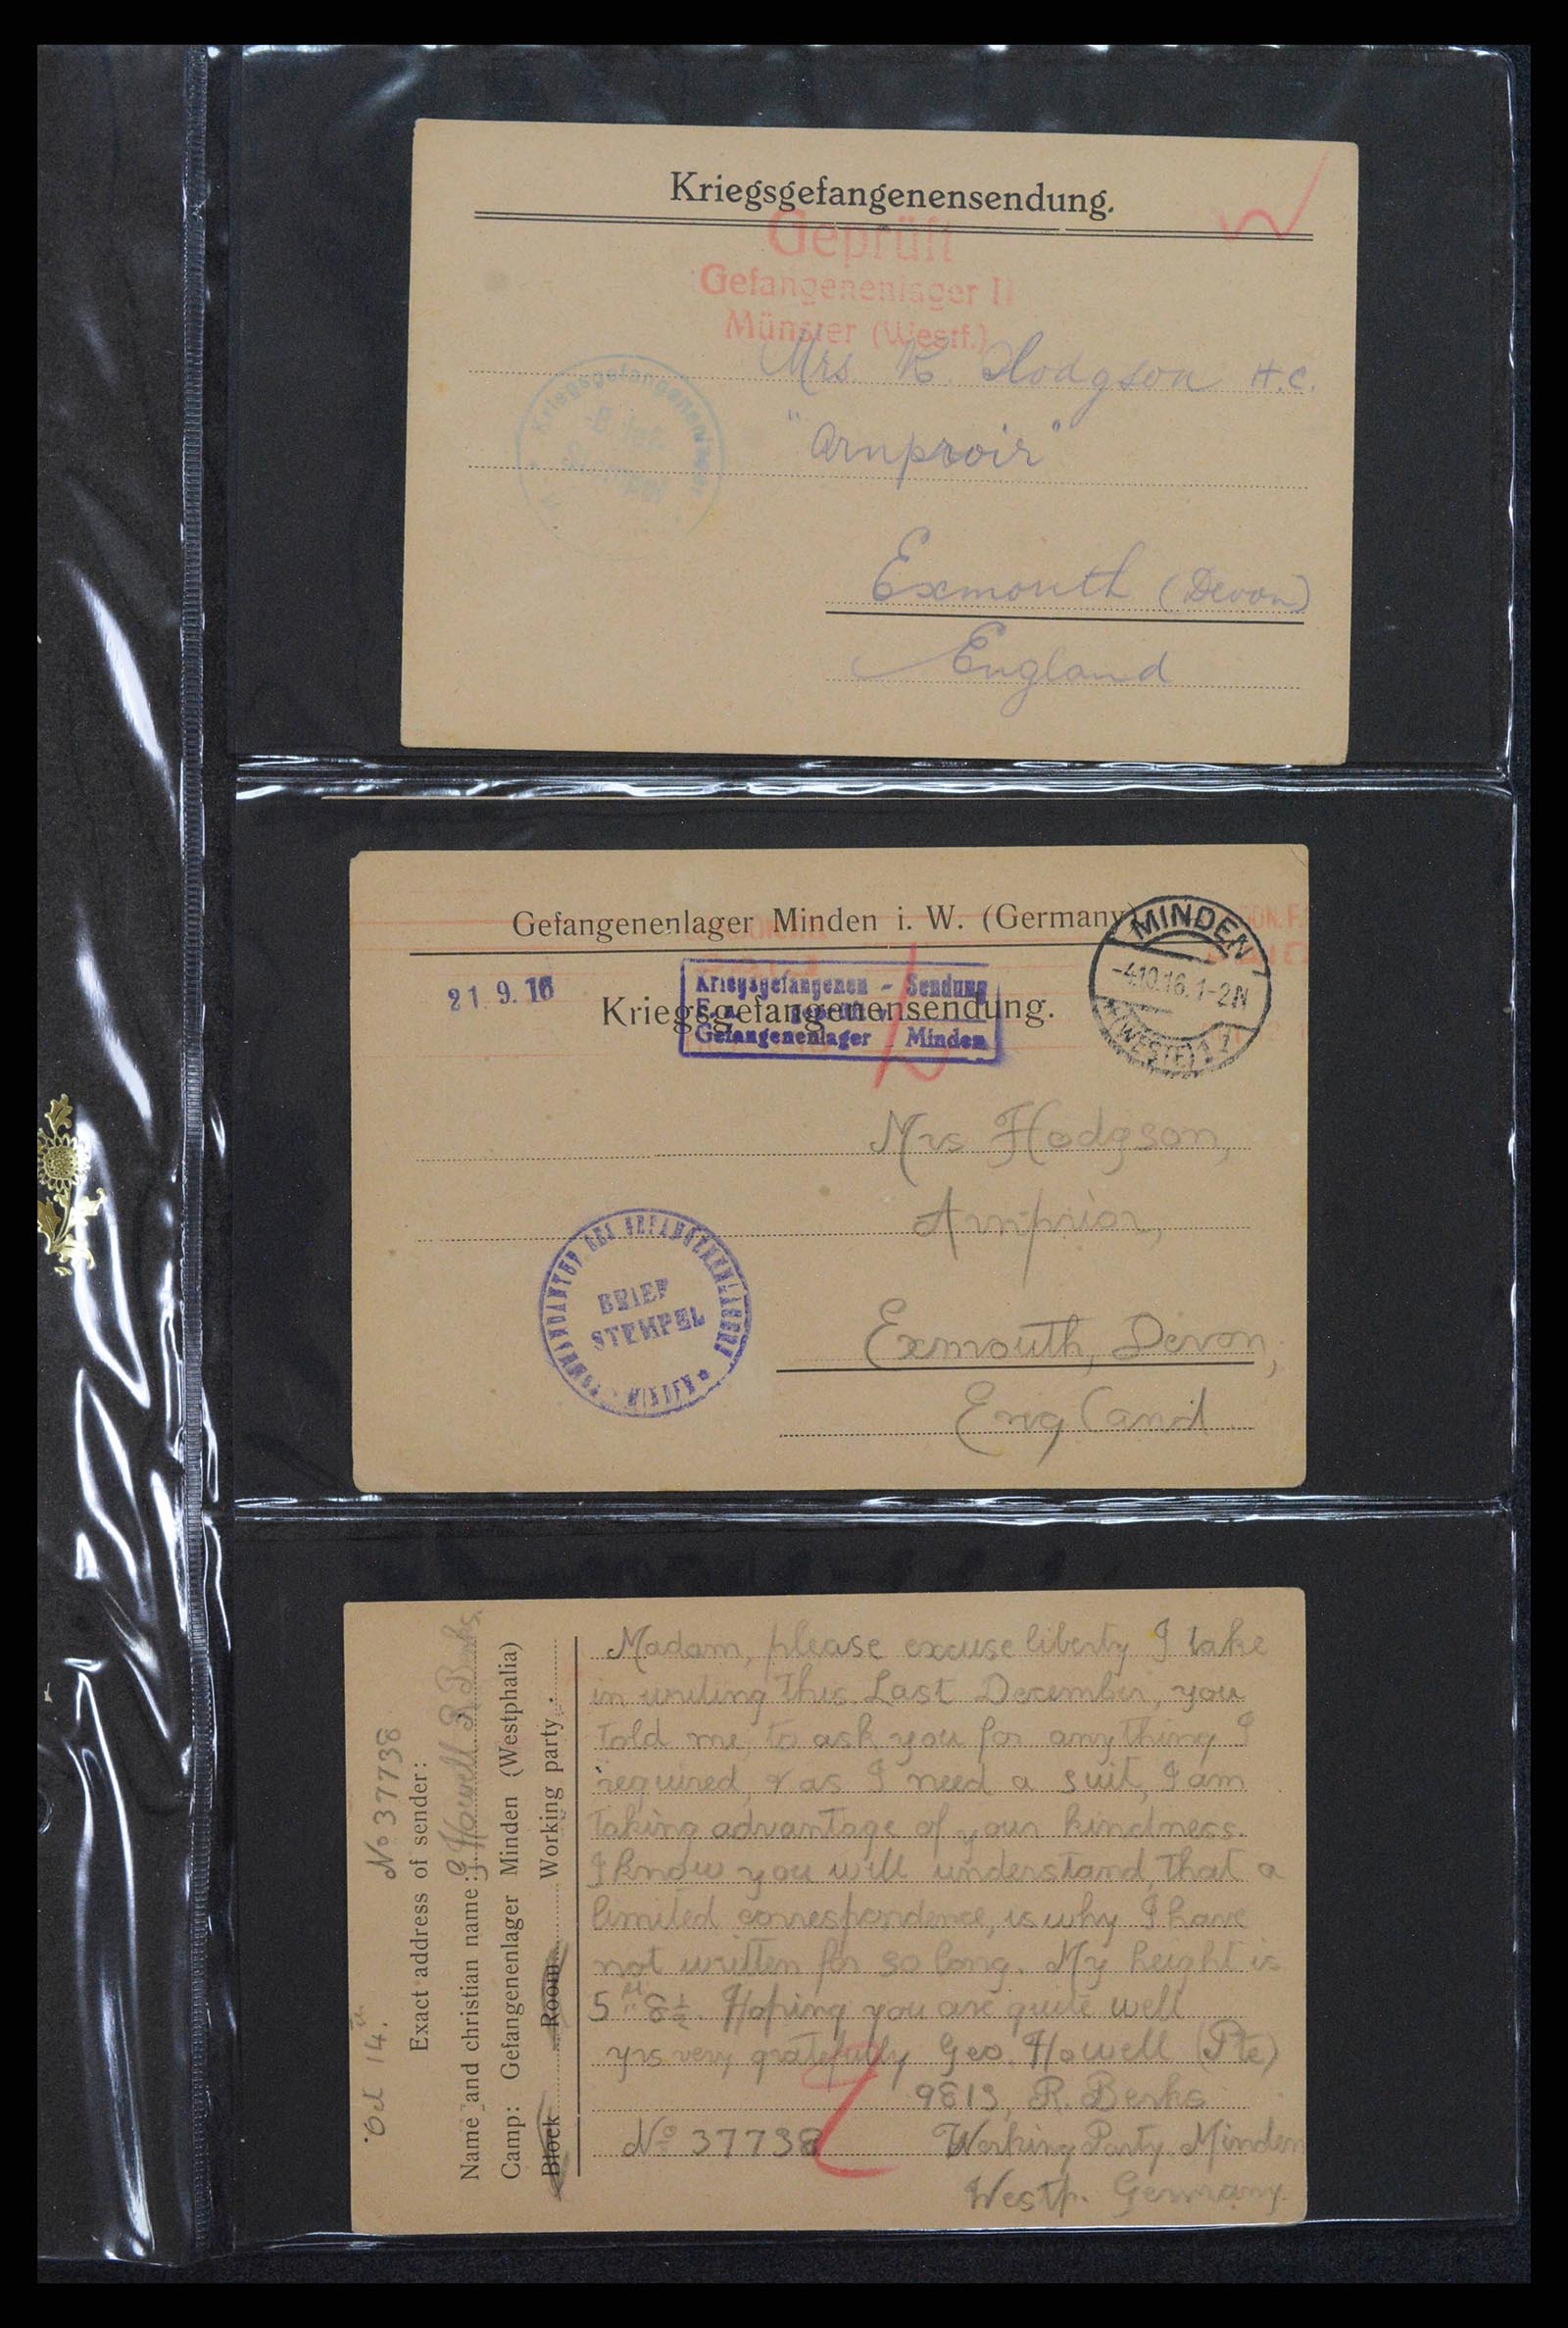 Kriegsgefangenensendung.
Geprüft
Gefangenenlager II
Münster (Westf.)
Mrs K. Hodgson H.C.
"Arnproir"
Exmouth (Devon)
England
Gefangenenlager Minden i. W. (Germany)
MINDEN
-4.10.16.1-2N
(WESTF)
21. 9. 16
Kriegsgefangenen - Sendung
Kriegsgefangenensendung.
Gefangenenlager Minden
Mrs Hodgson,
Arnprior,
KOMMANDANTUR DES GEFANGENENLAGERS MINDEN
BRIEF
STEMPEL
Exmouth, Devon,
England.
Oct 14th. No 37738
Exact address of sender:
Name and christian name: G Howell R Berks.
Camp: Gefangenenlager Minden (Westphalia)
Block Room Working party.
Madam, please excuse liberty I take
in writing this. Last December, you
told me, to ask you for anything I
required, & as I need a suit, I am
taking advantage of your kindness.
I know you will understand, that a
limited correspondence, is why I have
not written for so long. My height is
5 ft 8½. Hoping you are quite well
yrs very gratefully Geo. Howell (Pte)
9813, R. Berks
No 37738 Working Party Minden
Westp. Germany.